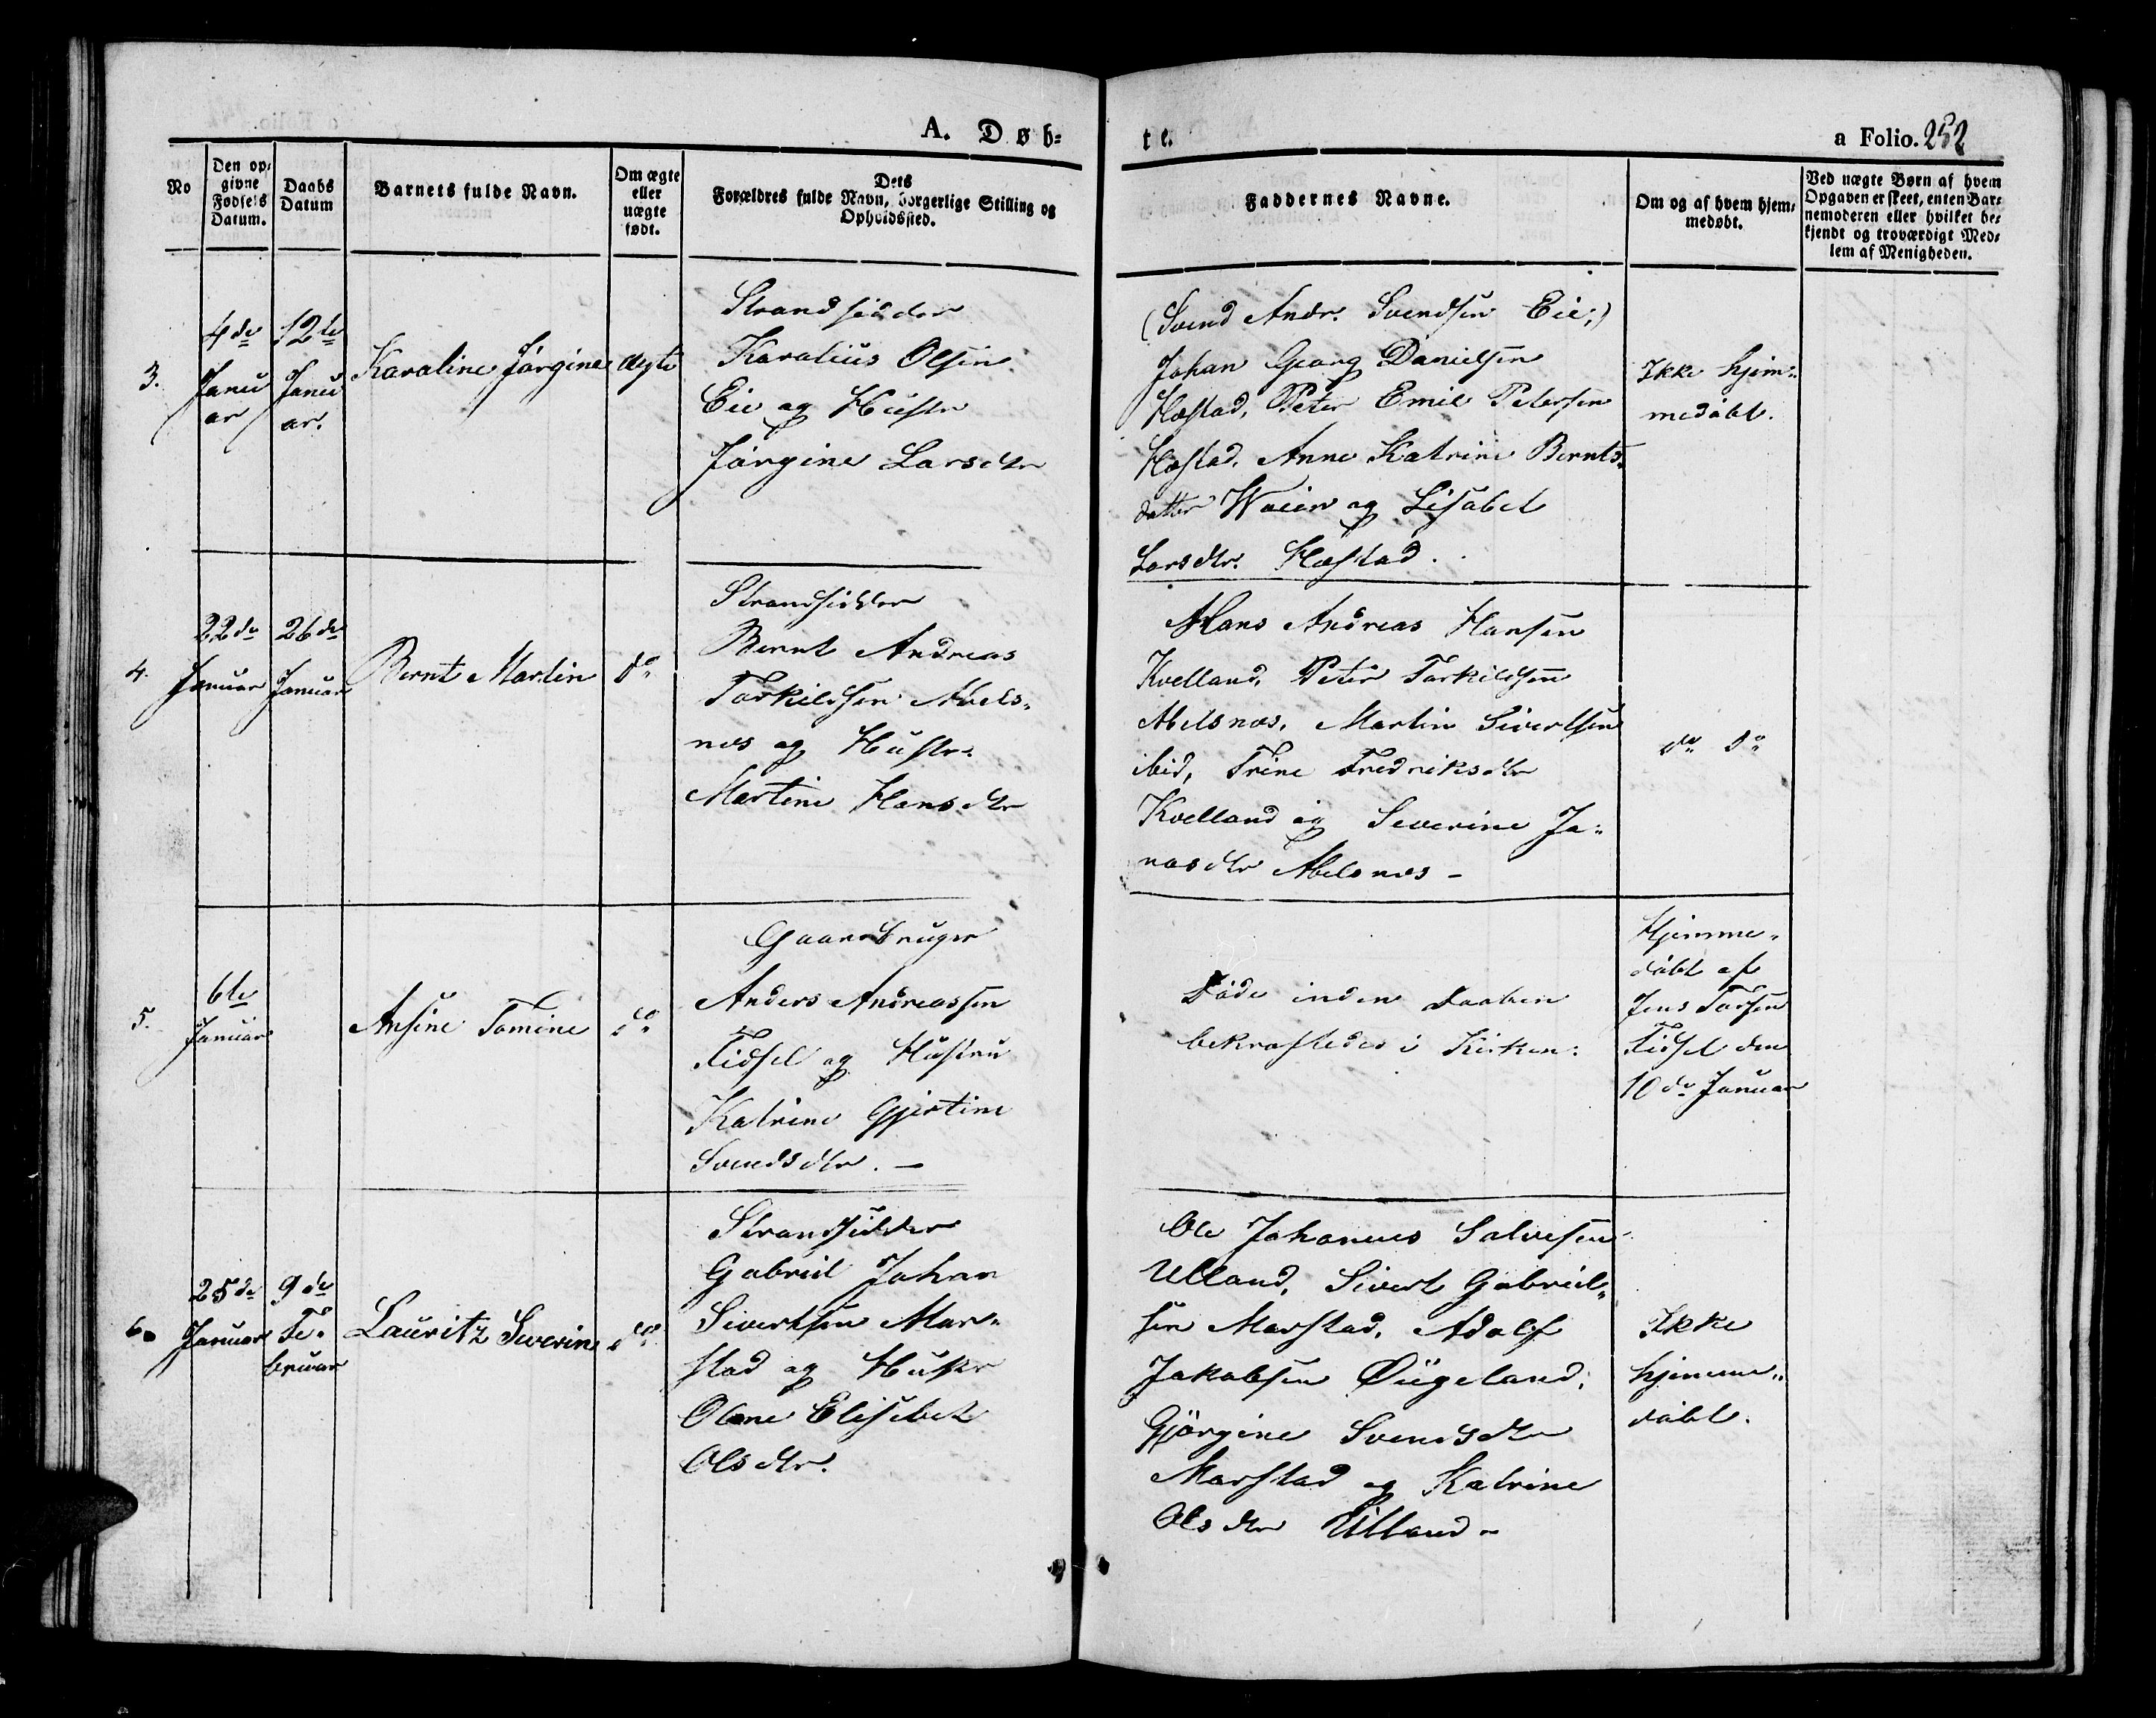 A. Døb-
te.
a Folio. 252
No
Den op-
givne
Fødsels
Datum.
Daabs
Datum
Barnets fulde Navn.
Om ægte
eller
uægte
født.
Dets
Forældres fulde Navn, borgerlige Stilling og
Opholdssted.
Faddernes Navne.
Om og af hvem hjem-
medøbt.
Ved uægte Børn af hvem
Opgaven er skeet, enten Bar-
nemoderen eller hvilket be-
kjendt og troværdigt Med-
lem af Menigheden.
3.
4de
Janu
ar
12te
Janu
ar.
Karoline Jørgine
ægte
Strandsidder
Karolius Olsen
Eie og Hustr
Jørgine Larsdtr
(Svend Andr. Svendsen Eie;)
Johan Georg Danielsen
Hæstad, Peter Emil Petersen
Hæstad, Anne Katrine Bernts-
datter Waien og Lisabet
Larsdtr. Hæstad.
Ikke hjem-
medøbt.
4.
22de
Januar
26de
Januar
Bernt Martin
do
Strandsidder
Bernt Andreas
Torkildsen Abels-
næs og Hustr.
Martine Hansdtr
Hans Andreas Hansen
Kvelland, Peter Torkildsen
Abelsnæs, Martin Sivertsen
ibid, Trine Fredriksdtr
Kvelland og Severine Jo-
nasdtr Abelsnæs -
do do
5.
6te
Januar
Ansine Tomine
do
Gaardbruger
Anders Andreassen
Tidsel og Hustru
Katrine Gjertine
Svendsdtr. -
Døde inden Daaben
bekræftedes i Kirken.
Hjemme-
døbt af
Jens Torsen
Tidsel den
10de Januar
6.
25de
Januar
9de
Fe-
bruar
Lauritz Severin
do
Strandsidder
Gabriel Johan
Sivertsen Mar-
stad og Hustr
Olene Elisabet
Olsdtr.
Ole Johannes Salvesen
Ulland, Sivert Gabriel-
sen Marstad, Adolf
Jakobsen Øigeland,
Gjørgine Svendsdtr
Marstad og Katrine
Olsdtr Ulland -
Ikke
hjemme-
døbt.